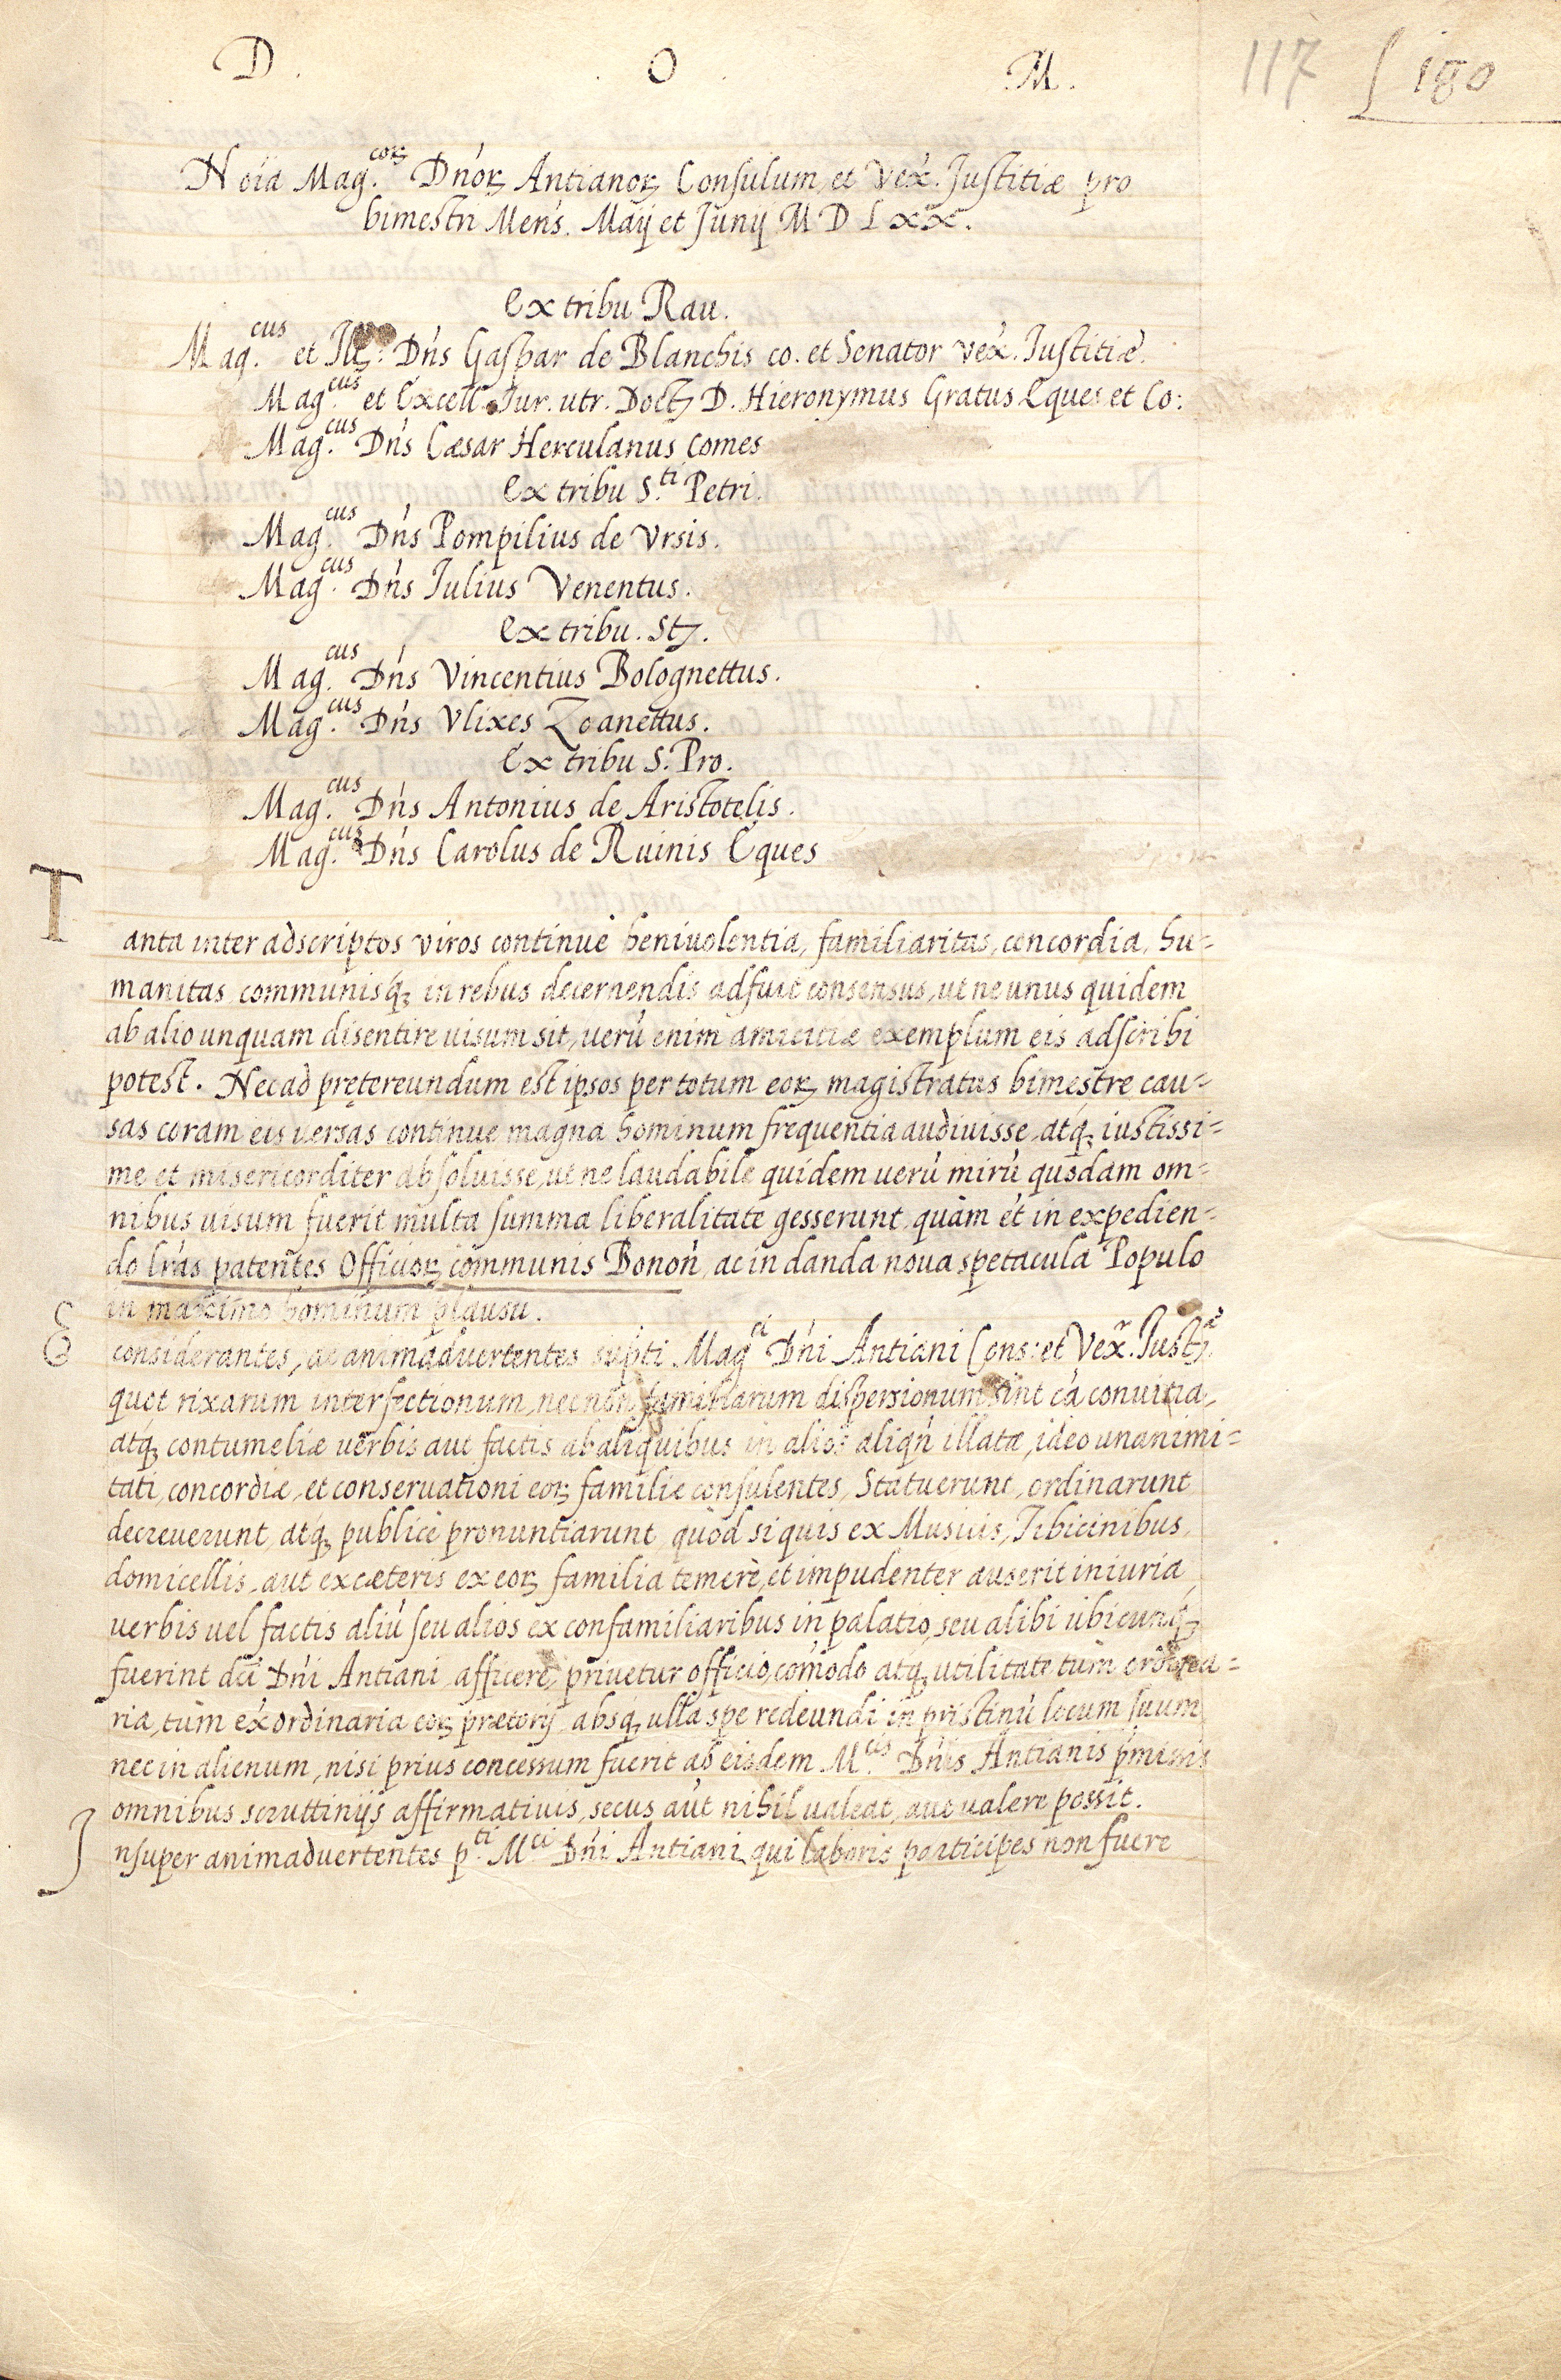 D. O. M. 117 180
Noia Mag.corꝝ Dnorꝝ Antianorꝝ Consulum, et Vex. Justitiæ pro
bimestri Mens. Maij et Junij M D L x x.
Ex tribu Rau.
Mag.cus et Ill.: Dns Gaspar de Blanchis co. et Senator vex. Iustitiæ.
Mag.cus et Excell. Iur. utr. Doct D. Hieronymus Gratus Eques et Co:
Mag.cus Dns Cæsar Herculanus Comes
Ex tribu S.ti Petri.
Mag.cus Dns Pompilius de Vrsis.
Mag.cus Dns Iulius Venentus.
Ex tribu. St.
Mag.cus Dns Vincentius Bolognettus.
Mag.cus Dns Vlixes Zoanettus.
Ex tribu S. Pro.
Mag.cus Dns Antonius de Aristotelis.
Mag.cus Dns Carolus de Ruinis Eques
Tanta inter adscriptos viros continuè beniuolentia, familiaritas, concordia, hu=
manitas communisq́ꝫ in rebus decernendis adfuit consensus, ut ne unus quidem
ab alio unquam disentire uisum sit, uerù enim amicitiæ exemplum eis adscribi
potest. Nec ad pręrereundum est ipsos per totum eorꝝ magistratus bimestre cau=
sas coram eis uersas continue magna hominum frequentia audiuisse, atq́ꝫ iustissi=
me et misericorditer absoluisse, ut ne laudabile quidem uerù mirù quodam om=
nibus uisum fuerit multa summa liberalitate gesserunt, quàm et in expedien=
do lras patentes Officiorꝝ communis Bonon, ac in danda noua spetacula Populo
in maximo hominum plausu.
Considerantes, ac animaduertentes supti Mag.ci Dni Antiani Cons: et Vex.r Just.æ
quot rixarum interfectionum, nec non familiarum dispersionum sint cà conuitia,
atq́ꝫ contumeliæ uerbis aut factis ab aliquibus in alios aliqn illatæ, ideo unanimi=
tati, concordiæ, et conseruationi eorꝝ familiæ consulentes, Statuerunt, ordinarunt
decreuerunt, atq́ꝫ publicè pronuntiarunt, quòd si quis ex Musicis, Tibicinibus,
domicellis, aut ex cæteris ex eorꝝ familia temerè, et impudenter auserit iniuria
uerbis uel factis aliù seu alios ex confamiliaribus in palatio, seu alibi ubicunq́ꝫ
fuerint dci Dni Antiani, afficere, priuetur officio, comodo atq́ꝫ utilitate tùm ordina=
ria, tùm exordinaria eorꝝ prætorij absq́ꝫ ulla spe redeundi in pristinù locum suum
nec in alienum, nisi prius concessum fuerit ab eisdem M.cis Dnis Antianis pmissis
omnibus scruttinijs affirmatiuis, secus aut nihil ualeat, aut ualere possit.
Insuper animaduertentes p.ti M.ci Dni Antiani, qui laboris participes non fuere